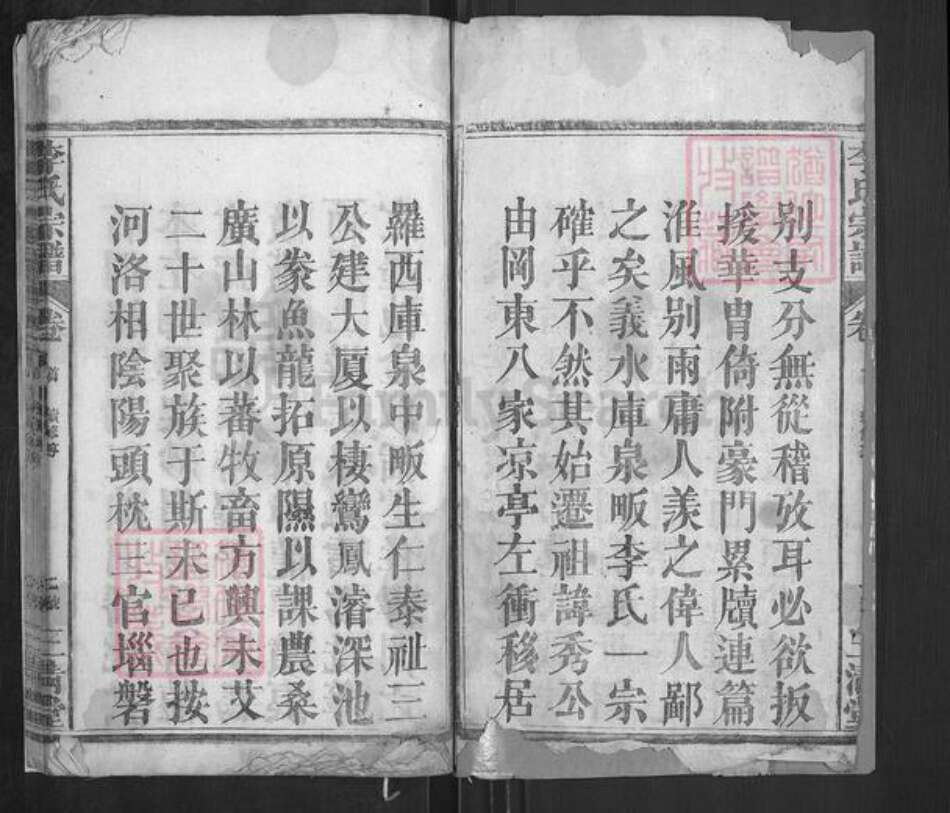 別支分無從稽攷耳必欲扳
援華胄倚附豪門累牘連篇
淮風別雨庸人羨之偉人鄙
之矣義水庫泉畈李氏一宗
確乎不然其始遷祖諱秀公
由岡東八家凉亭左衝移居
羅西庫泉中畈生仁泰祉三
公建大厦以棲鸞鳳濬深池
以豢魚龍拓原隰以課農桑
廣山林以蕃牧畜方興未艾
二十世聚族于斯未已也按
河洛相陰陽頭枕三官堖磐
李氏宗譜